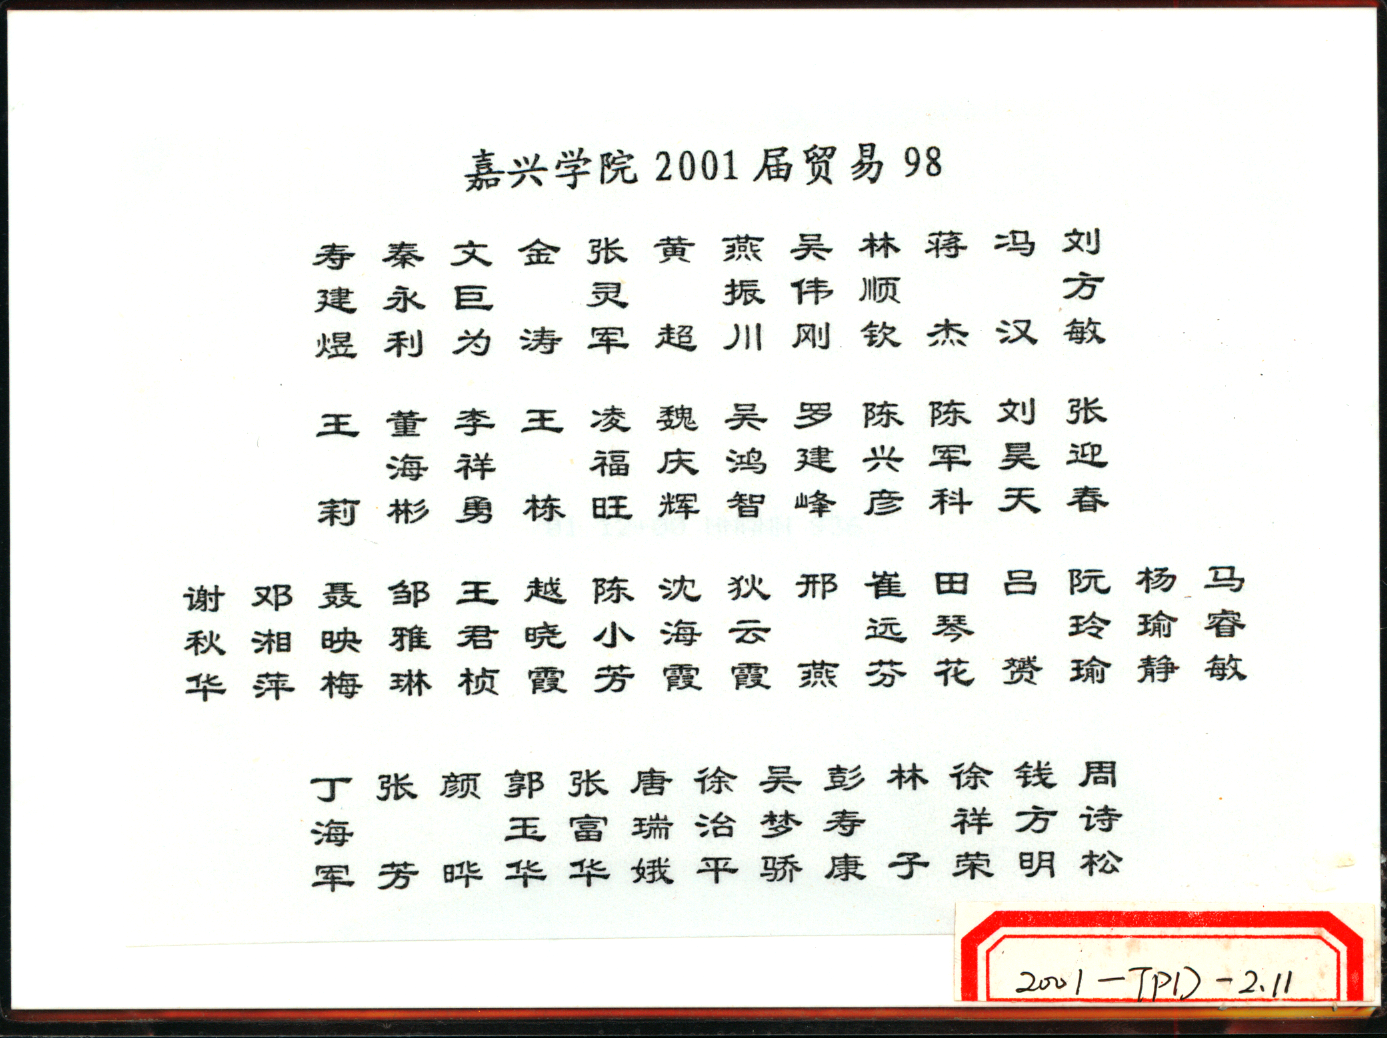 嘉兴学院2001届贸易98
寿建煜 秦永利 文巨为 金涛 张灵军 黄超 燕振川 吴伟刚 林顺钦 蒋杰 冯汉 刘方敏
王莉 董海彬 李祥勇 王栋 凌福旺 魏庆辉 吴鸿智 罗建峰 陈兴彦 陈军科 刘昊天 张迎春
谢秋华 邓湘萍 聂映梅 邹雅琳 王君桢 越晓霞 陈小芳 沈海霞 狄云霞 邢燕 崔远芬 田琴花 吕赟 阮玲瑜 杨瑜静 马睿敏
丁海军 张芳 颜晔 郭玉华 张富华 唐瑞娥 徐治平 吴梦骄 彭寿康 林子 徐祥荣 钱方明 周诗松
2001-TP1D-2.11